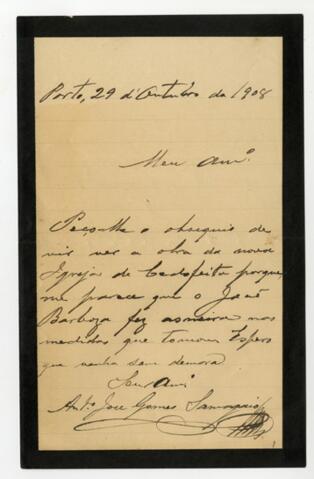 Porto, 29 d'Outubro de 1908
Meu Amº.
Peço-lhe o obsequio de
vir ver a obra da nova
Igreja de Cedofeita porque
me parece que o José
Barboza fez asneira nas
medidas que tomou Espero
que venha sem demora
Seu Amº
Antº José Gomes Samagaio